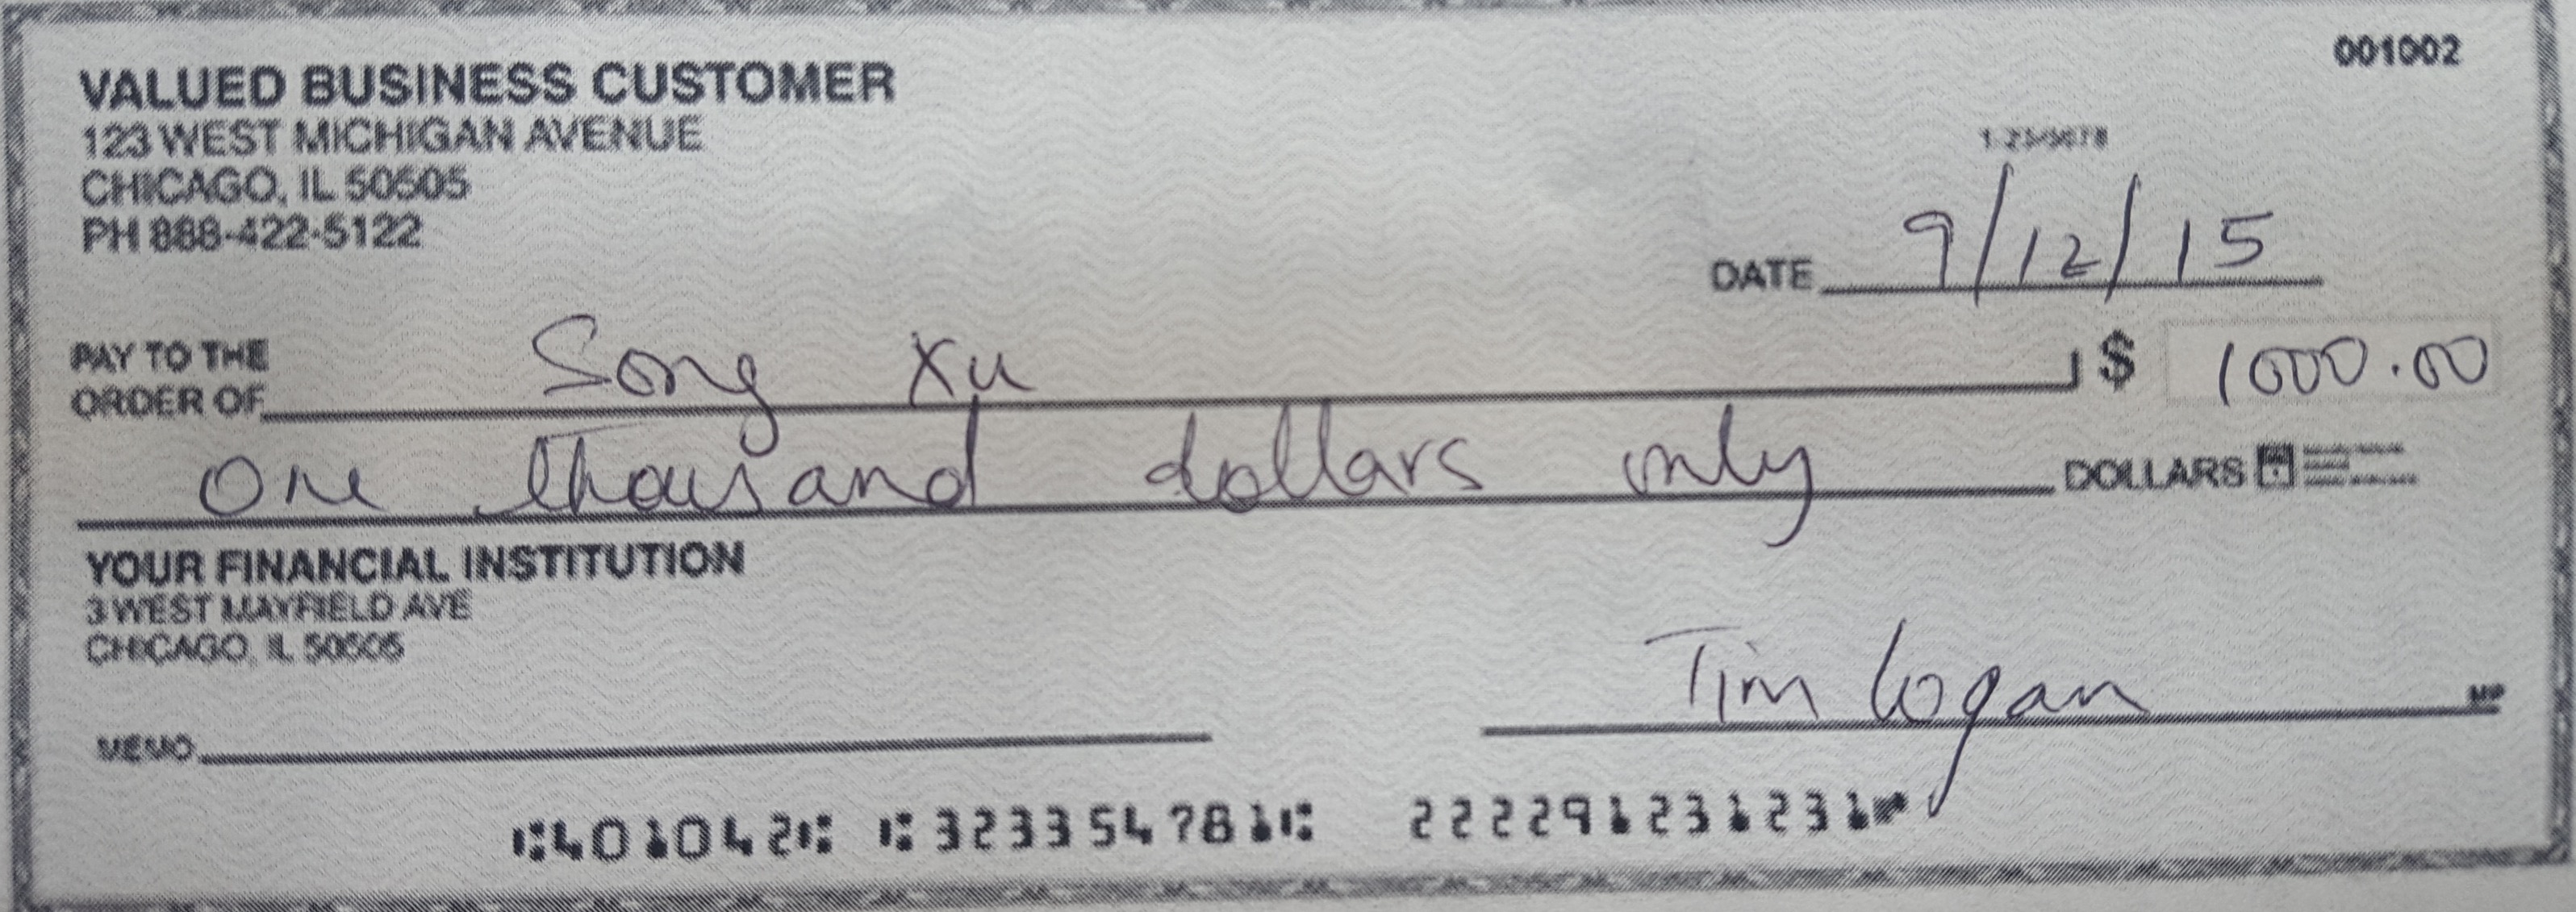 001002
VALUED BUSINESS CUSTOMER
123 WEST MICHIGAN AVENUE
CHICAGO, IL 50505
PH 888-422-5122
DATE 9/12/15
PAY TO THE
ORDER OF Song Xu $ 1000.00
One thousand dollars only DOLLARS
YOUR FINANCIAL INSTITUTION
3 WEST MAYFIELD AVE
CHICAGO, IL 50505
Tim Logan MP
MEMO
⑆401042⑆ ⑆323354781⑆ 222291231231⑈